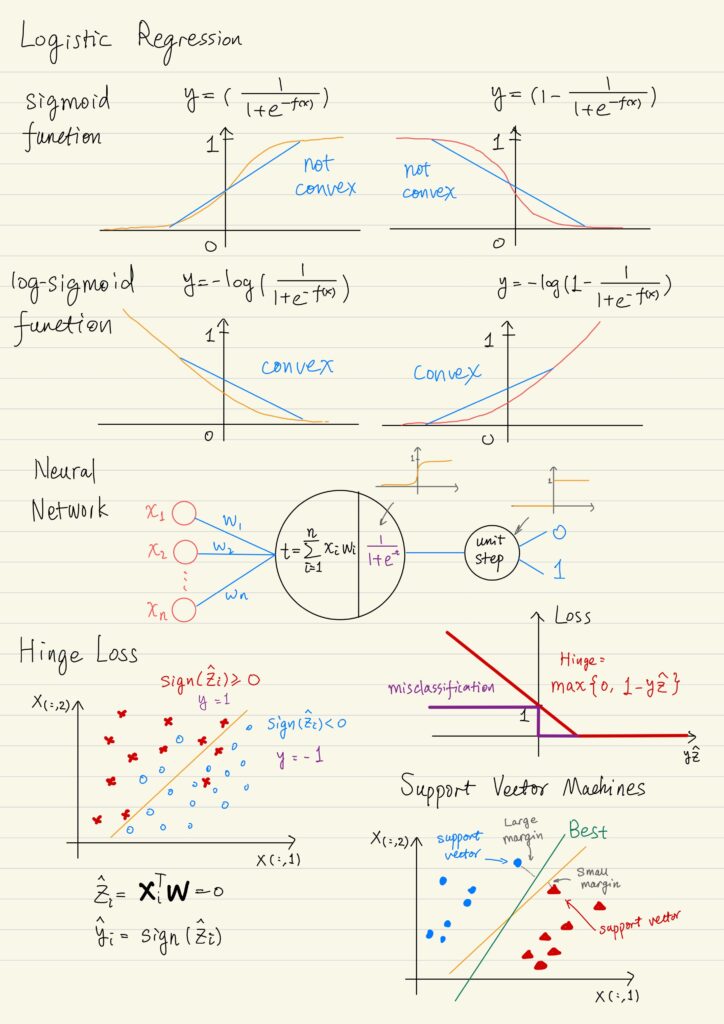 Logistic Regression
sigmoid
function
y = ( 1 / 1+e^-f(x) )
y = (1 - 1 / 1+e^-f(x) )
1
not
convex
0
1
not
convex
0
log-sigmoid
function
y = -log ( 1 / 1+e^-f(x) )
y = -log(1 - 1 / 1+e^-f(x) )
1
convex
0
1
convex
0
Neural
Network
x₁
x₂
⋮
xₙ
w₁
w₂
wₙ
t = Σ_{i=1}^{n} xᵢ wᵢ
1 / 1+e^-t
1
unit
step
1
0
1
Hinge Loss
sign(ẑᵢ) ≥ 0
y = 1
X(:,2)
sign(ẑᵢ) < 0
y = -1
X(:,1)
ẑᵢ = xᵢᵀw = 0
ŷᵢ = sign(ẑᵢ)
Loss
Hinge =
max{0, 1-yẑ}
misclassification
1
yẑ
Support Vector Machines
X(:,2)
support
vector
Large
margin
Best
Small
margin
support vector
X(:,1)